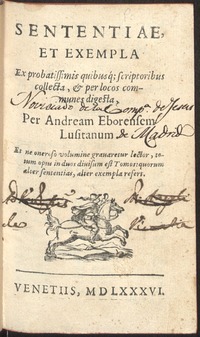 SENTENTIAE,
ET EXEMPLA
Ex probatissimis quibusq; scriptoribus
collecta, & per locos com-
munes digesta,
Noviciado de la Comp.ª de Jesus
Per Andream Eborensem
Lusitanum
de Madrid
Et ne oneroso volumine gravaretur lector, to-
tum opus in duos divisum est Tomos: quorum
alter sententias, alter exempla refert.
VENETIIS, MDLXXXVI.